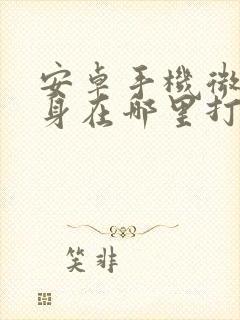 安卓手機微
身在哪里打
笑非